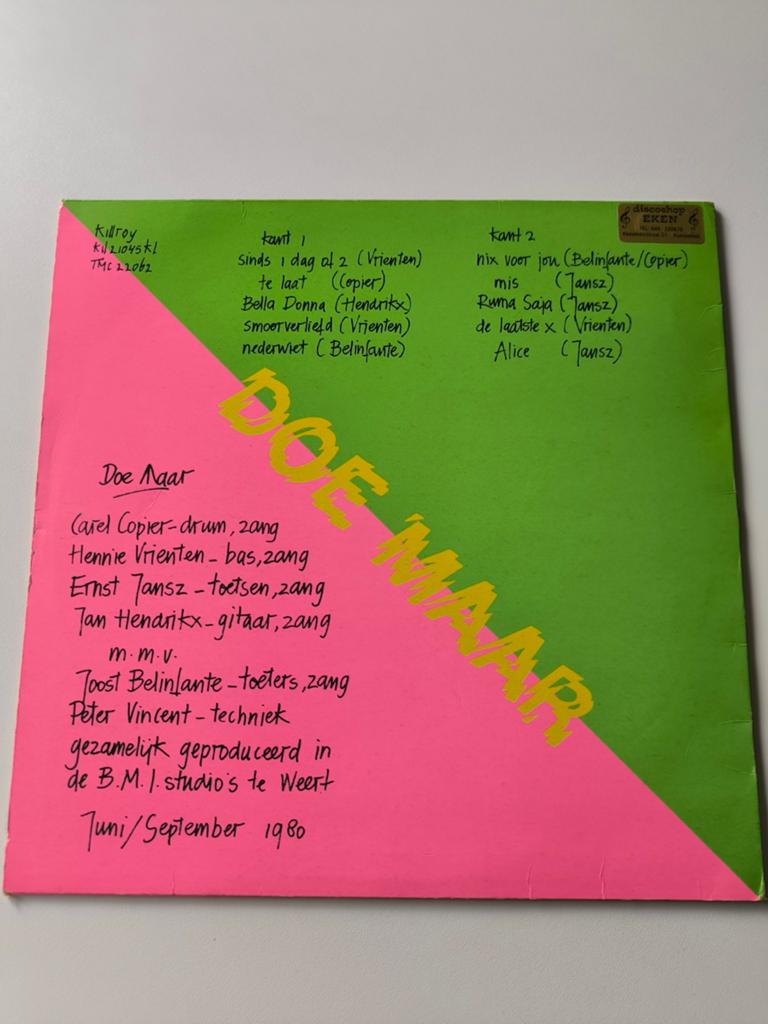 Killroy
Kil 21045 kl
TMC 22062
kant 1
sinds 1 dag of 2 (Vrienten)
te laat (Copier)
Bella Donna (Hendrikx)
smoorverliefd (Vrienten)
nederwiet (Belinfante)
kant 2
nix voor jou (Belinfante/Copier)
mis (Jansz)
Ruma Saja (Jansz)
de laatste x (Vrienten)
Alice (Jansz)
discoshop
EKEN
DOE MAAR
Doe Maar
Carel Copier-drum, zang
Hennie Vrienten - bas, zang
Ernst Jansz - toetsen, zang
Jan Hendrikx - gitaar, zang
m.m.v.
Joost Belinfante - toeters, zang
Peter Vincent - techniek
gezamelijk geproduceerd in
de B.M.I. studio's te Weert
Juni/September 1980